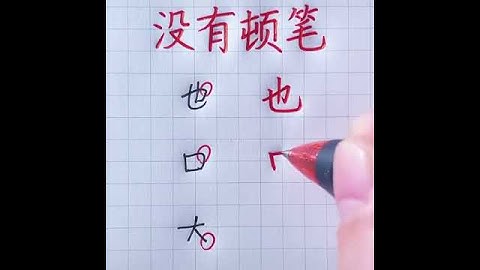 没有顿笔
也 也
口
大